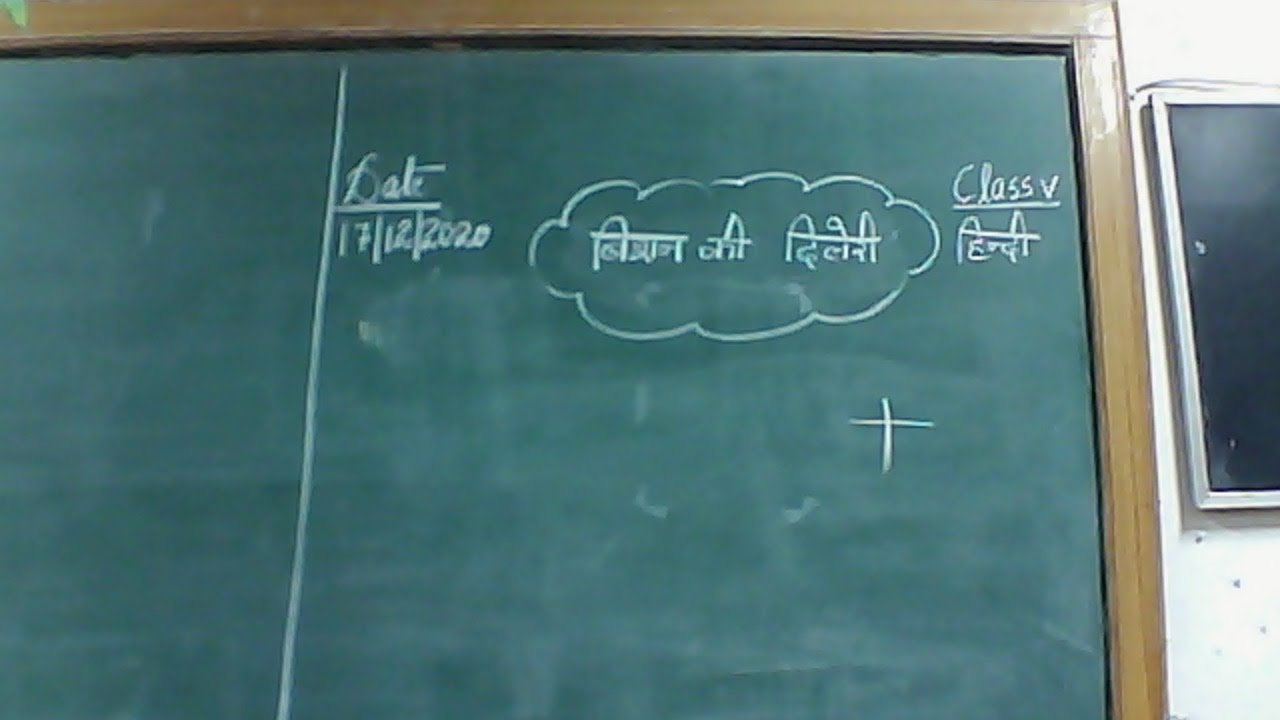 Date
17/12/2020
बिशन की दिलेरी
Class V
हिन्दी